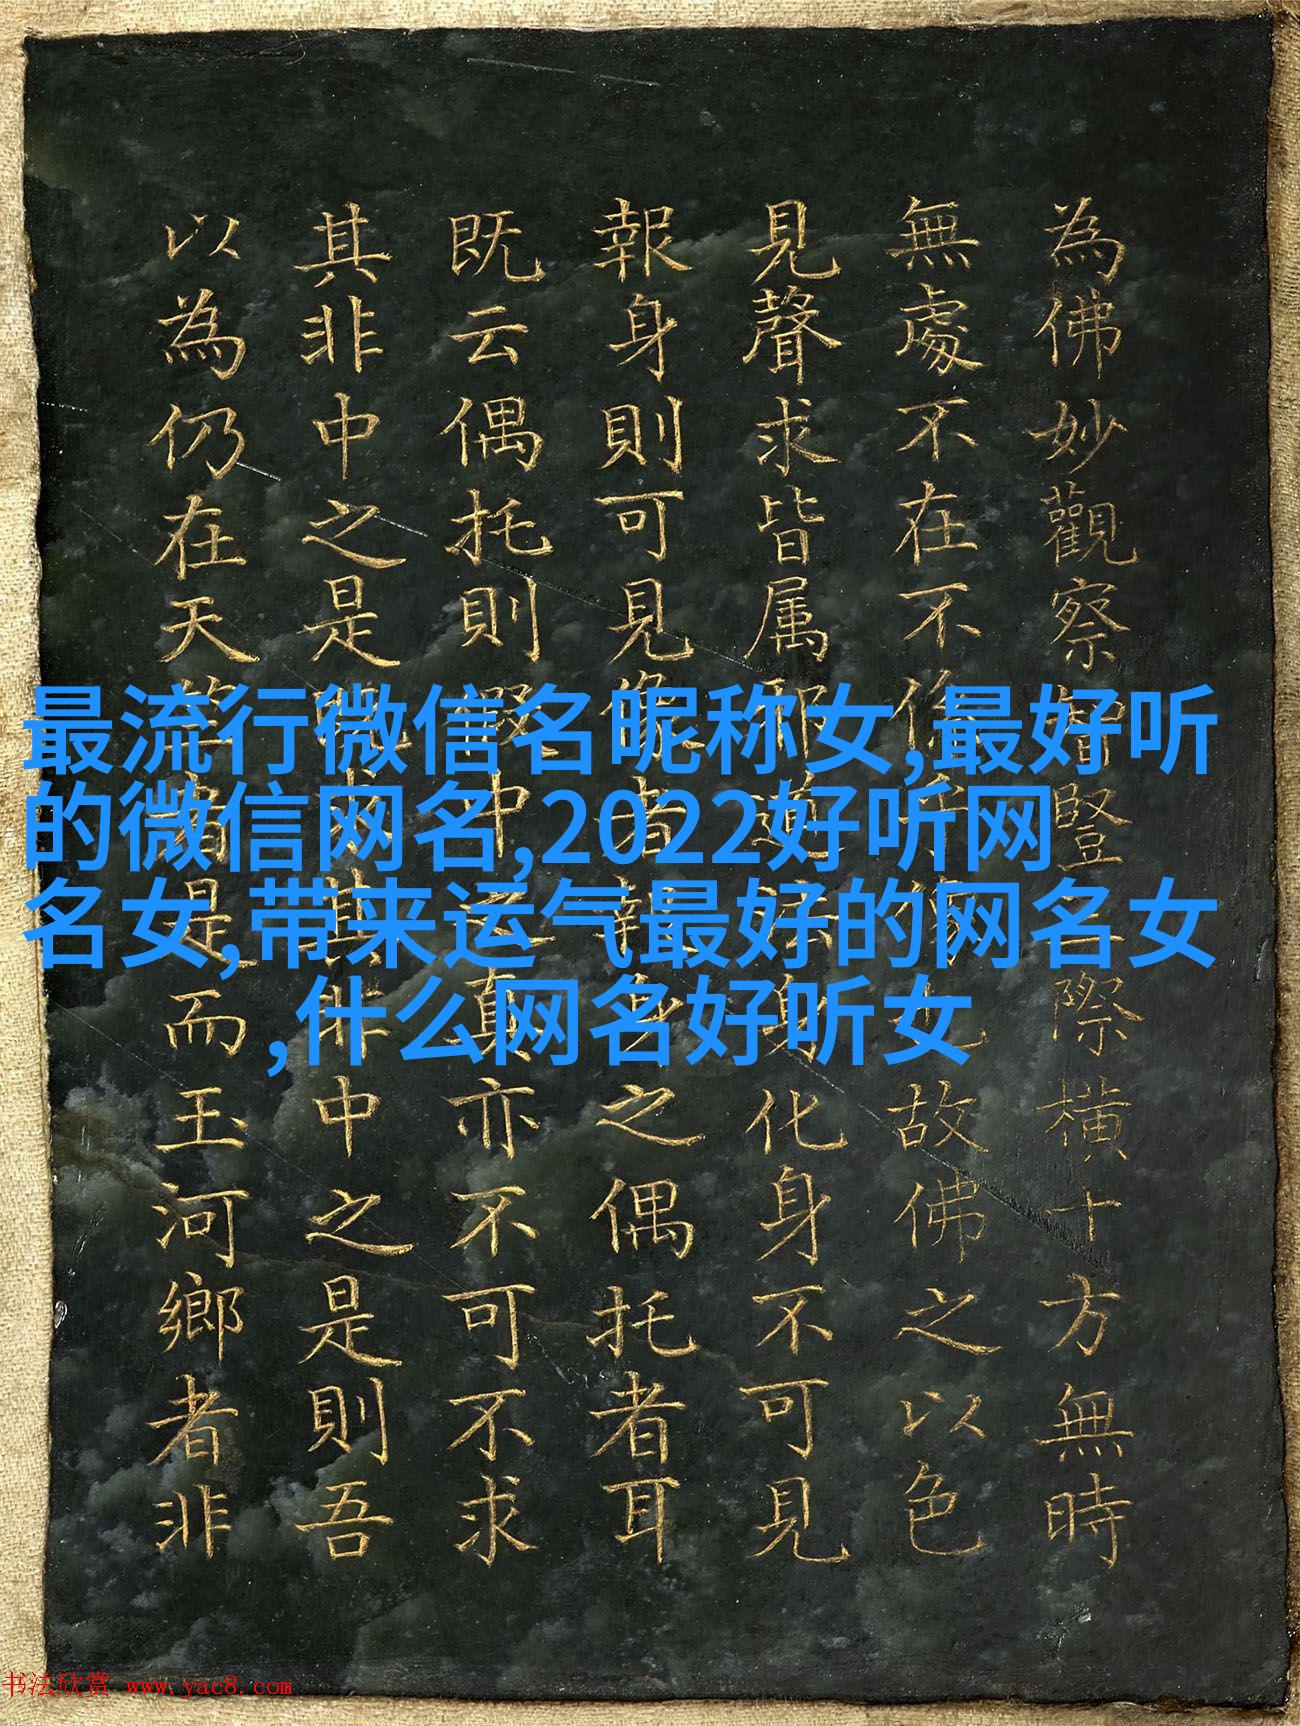 為佛妙觀察智豎際橫十方無時
無處不在不故佛之以色
見聲求皆属邪身化身不可見
報身則可見者報身之偶托者耳
既云偶托則中真亦不可不求
其非中之是其非中之是則吾
以為仍在天者是而玉河鄉者非
最流行微信名昵称女,最好听
的微信网名,2022好听网
名女,带来运气最好的网名女
,什么网名好听女
书法欣赏 www.yac8.com